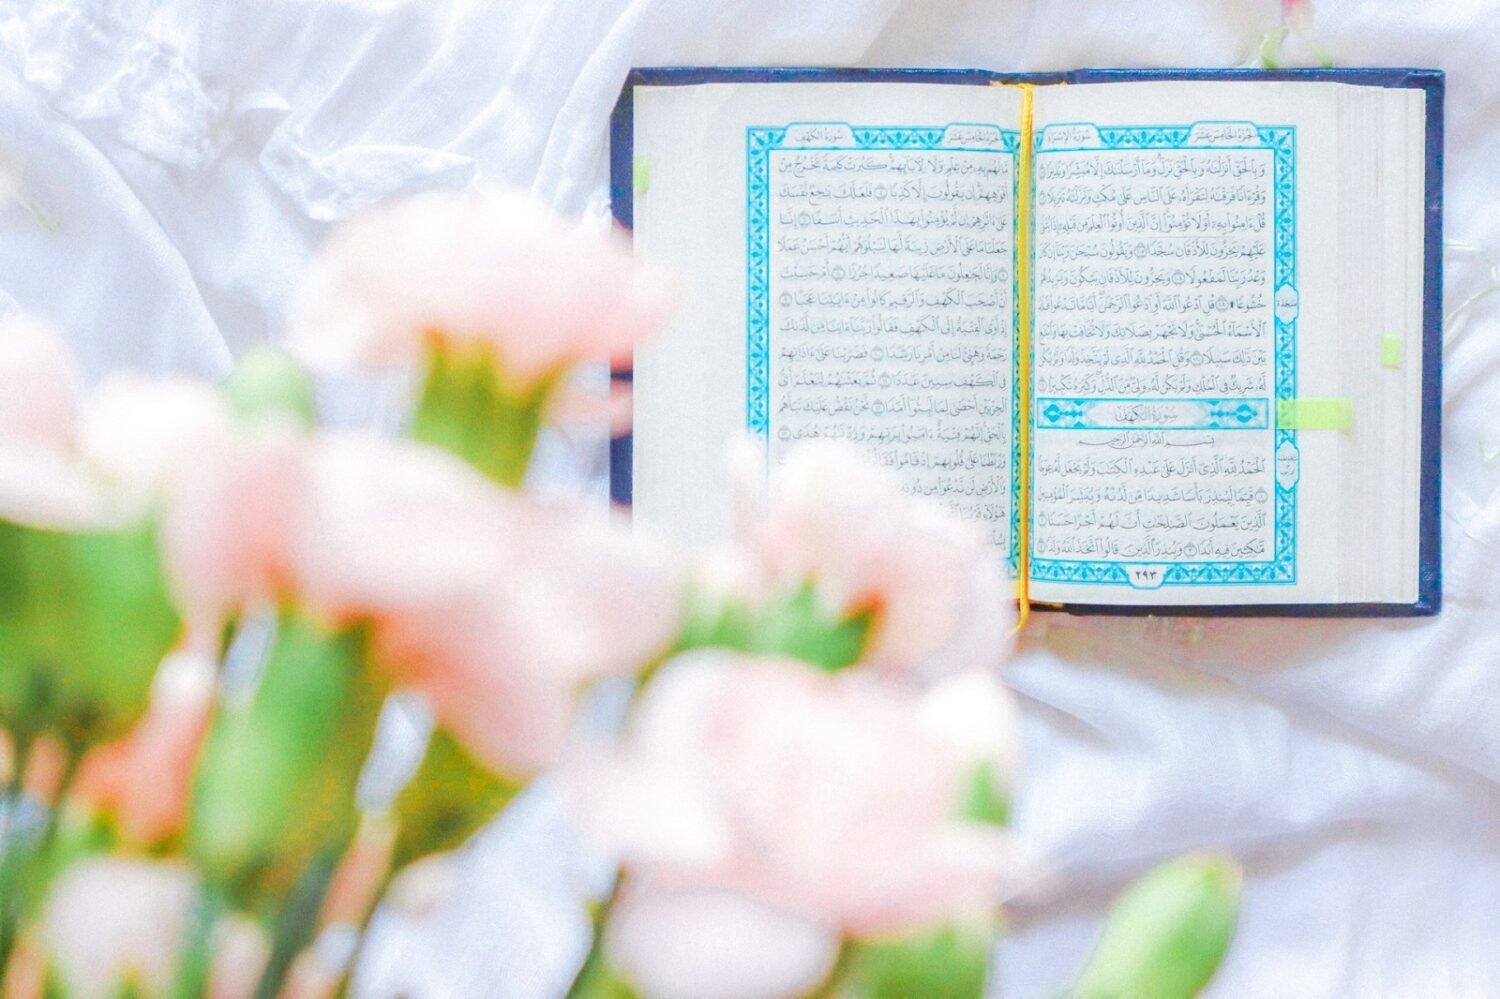 الجزء الخامس عشر سورة الإسراء
وَبِٱلْحَقِّ أَنزَلْنَٰهُ وَبِٱلْحَقِّ نَزَلَ وَمَآ أَرْسَلْنَٰكَ إِلَّا مُبَشِّرًا وَنَذِيرًا ١٠٥
وَقُرْءَانًا فَرَقْنَٰهُ لِتَقْرَأَهُۥ عَلَى ٱلنَّاسِ عَلَىٰ مُكْثٍ وَنَزَّلْنَٰهُ تَنزِيلًا ١٠٦
قُلْ ءَامِنُوا۟ بِهِۦٓ أَوْ لَا تُؤْمِنُوٓا۟ إِنَّ ٱلَّذِينَ أُوتُوا۟ ٱلْعِلْمَ مِن قَبْلِهِۦٓ إِذَا يُتْلَىٰ
عَلَيْهِمْ يَخِرُّونَ لِلْأَذْقَانِ سُجَّدًا ١٠٧ وَيَقُولُونَ سُبْحَٰنَ رَبِّنَآ إِن كَانَ
وَعْدُ رَبِّنَا لَمَفْعُولًا ١٠٨ وَيَخِرُّونَ لِلْأَذْقَانِ يَبْكُونَ وَيَزِيدُهُمْ
خُشُوعًا ۩ ١٠٩ قُلِ ٱدْعُوا۟ ٱللَّهَ أَوِ ٱدْعُوا۟ ٱلرَّحْمَٰنَ أَيًّا مَّا تَدْعُوا۟ فَلَهُ
سجدة
ٱلْأَسْمَآءُ ٱلْحُسْنَىٰ وَلَا تَجْهَرْ بِصَلَاتِكَ وَلَا تُخَافِتْ بِهَا وَٱبْتَغِ
بَيْنَ ذَٰلِكَ سَبِيلًا ١١٠ وَقُلِ ٱلْحَمْدُ لِلَّهِ ٱلَّذِى لَمْ يَتَّخِذْ وَلَدًا وَلَمْ يَكُن
لَّهُۥ شَرِيكٌ فِى ٱلْمُلْكِ وَلَمْ يَكُن لَّهُۥ وَلِىٌّ مِّنَ ٱلذُّلِّ وَكَبِّرْهُ تَكْبِيرًا ١١١
سورة الكهف
بِسْمِ ٱللَّهِ ٱلرَّحْمَٰنِ ٱلرَّحِيمِ
ٱلْحَمْدُ لِلَّهِ ٱلَّذِىٓ أَنزَلَ عَلَىٰ عَبْدِهِ ٱلْكِتَٰبَ وَلَمْ يَجْعَل لَّهُۥ عِوَجَا
١ قَيِّمًا لِّيُنذِرَ بَأْسًا شَدِيدًا مِّن لَّدُنْهُ وَيُبَشِّرَ ٱلْمُؤْمِنِينَ
ٱلَّذِينَ يَعْمَلُونَ ٱلصَّٰلِحَٰتِ أَنَّ لَهُمْ أَجْرًا حَسَنًا ٢
مَّٰكِثِينَ فِيهِ أَبَدًا ٣ وَيُنذِرَ ٱلَّذِينَ قَالُوا۟ ٱتَّخَذَ ٱللَّهُ وَلَدًا ٤
٢٩٣
الجزء الخامس عشر سورة الكهف
مَّا لَهُم بِهِۦ مِنْ عِلْمٍ وَلَا لِءَابَآئِهِمْ كَبُرَتْ كَلِمَةً تَخْرُجُ مِنْ
أَفْوَٰهِهِمْ إِن يَقُولُونَ إِلَّا كَذِبًا ٥ فَلَعَلَّكَ بَٰخِعٌ نَّفْسَكَ
عَلَىٰٓ ءَاثَٰرِهِمْ إِن لَّمْ يُؤْمِنُوا۟ بِهَٰذَا ٱلْحَدِيثِ أَسَفًا ٦ إِنَّا
جَعَلْنَا مَا عَلَى ٱلْأَرْضِ زِينَةً لَّهَا لِنَبْلُوَهُمْ أَيُّهُمْ أَحْسَنُ عَمَلًا
٧ وَإِنَّا لَجَٰعِلُونَ مَا عَلَيْهَا صَعِيدًا جُرُزًا ٨ أَمْ حَسِبْتَ
أَنَّ أَصْحَٰبَ ٱلْكَهْفِ وَٱلرَّقِيمِ كَانُوا۟ مِنْ ءَايَٰتِنَا عَجَبًا ٩
إِذْ أَوَى ٱلْفِتْيَةُ إِلَى ٱلْكَهْفِ فَقَالُوا۟ رَبَّنَآ ءَاتِنَا مِن لَّدُنكَ
رَحْمَةً وَهَيِّئْ لَنَا مِنْ أَمْرِنَا رَشَدًا ١٠ فَضَرَبْنَا عَلَىٰٓ ءَاذَانِهِمْ
فِى ٱلْكَهْفِ سِنِينَ عَدَدًا ١١ ثُمَّ بَعَثْنَٰهُمْ لِنَعْلَمَ أَىُّ
ٱلْحِزْبَيْنِ أَحْصَىٰ لِمَا لَبِثُوٓا۟ أَمَدًا ١٢ نَّحْنُ نَقُصُّ عَلَيْكَ نَبَأَهُم
بِٱلْحَقِّ إِنَّهُمْ فِتْيَةٌ ءَامَنُوا۟ بِرَبِّهِمْ وَزِدْنَٰهُمْ هُدًى ١٣
وَرَبَطْنَا عَلَىٰ قُلُوبِهِمْ إِذْ قَامُوا۟ فَقَالُوا۟
وَٱلْأَرْضِ لَن نَّدْعُوَا۟ مِن دُونِهِۦٓ
هَٰٓؤُلَآءِ قَوْمُنَا